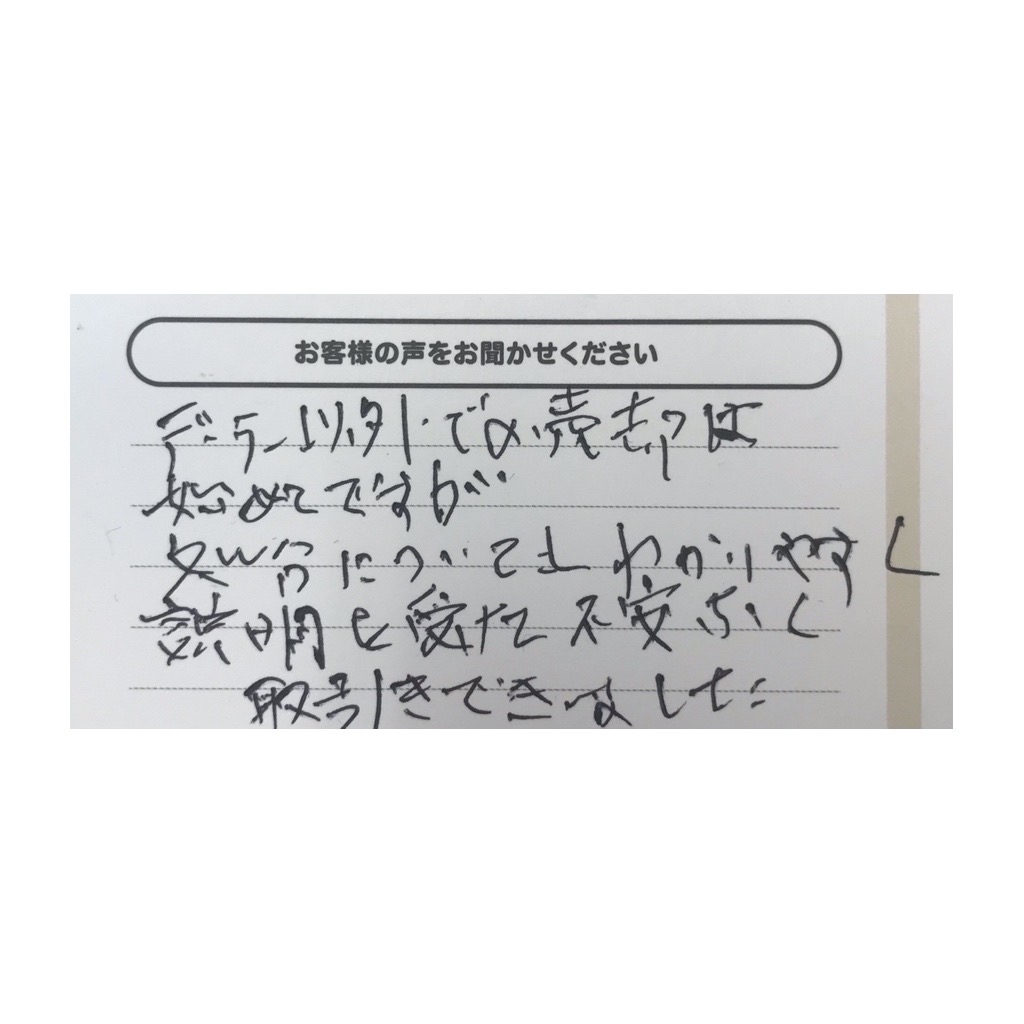 お客様の声をお聞かせください
ディーラー以外での売却は
始めてですが
処分についても わかりやすく
説明を受けて 不安なく
取引きできました